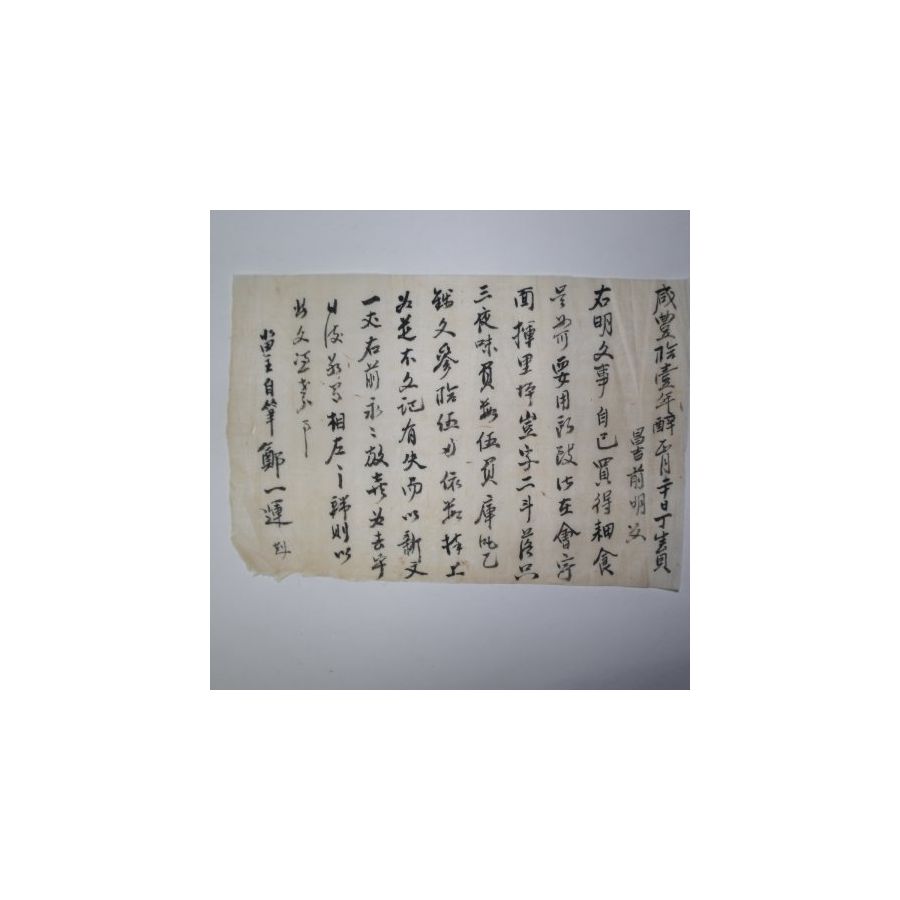 咸豊拾壹年酉正月二十日丁生員
昌吉前明文
右明文事自己買得耕食
是如可要用所致以在會字
面揮里坪豈字二斗落只
三夜味負數伍負庫叱乙
錢文參拾伍兩依數捧上
為是本文記有失而以新文
一丈右前永〻放賣為去乎
日後若有相左之談則以
此文憑考事
畓主自筆鄭一運